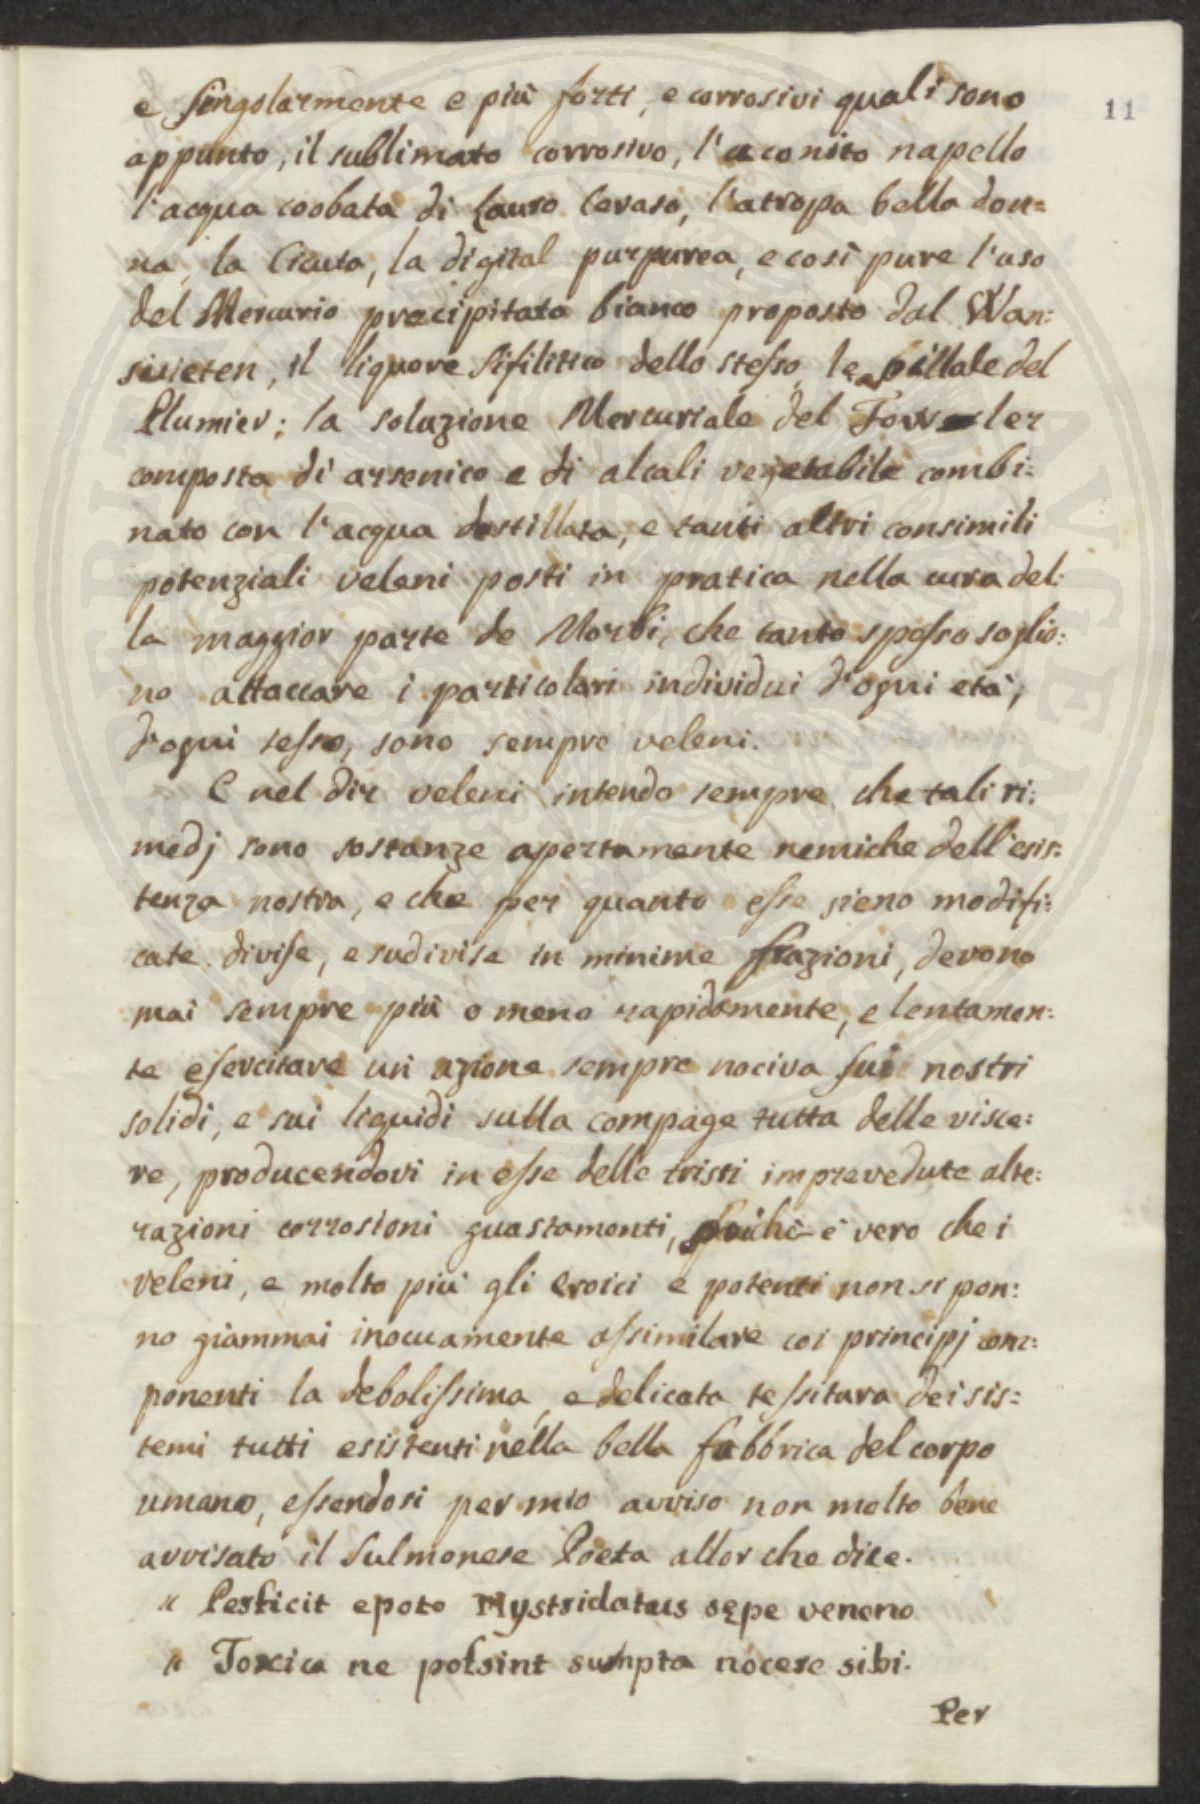 11
e singolarmente e più forti, e corrosivi quali sono
appunto, il sublimato corrosivo, l'aconito napello
l'acqua coobata di Lauro Ceraso, l'atropa bella don=
na, la Cicuta, la digital purpurea, e così pure l'uso
del Mercurio precipitato bianco proposto dal Wan=
sivieten, il liquore sifilitico dello stesso, le pillale del
Plumier; la soluzione Mercuriale del Fowler
composta di arsenico e di alcali vegetabile combi=
nato con l'acqua destillata, e tanti altri consimili
potenziali veleni posti in pratica nella cura del=
la maggior parte de Morbi, che tanto spesso soglio=
no attaccare i particolari individui d'ogni età,
d'ogni sesso, sono sempre veleni.
E nel dir veleni intendo sempre che tali ri=
medj sono sostanze apertamente nemiche dell'esis=
tenza nostra, e che per quanto esse sieno modifi=
cate divise, e sudivise in minime frazioni, devono
mai sempre più o meno rapidamente, e lentamen=
te esercitare un azione sempre nociva sui nostri
solidi, e sui liquidi sulla compage tutta delle visce=
re, producendovi in esse delle tristi imprevedute alte=
razioni corrosioni guastamenti, poichè è vero che i
veleni, e molto più gli eroici e potenti non si pon=
no giammai inocuamente assimilare coi principj com=
ponenti la debolissima, e delicata tessitura dei sis=
temi tutti esistenti nella bella fabbrica del corpo
umano, essendosi per mio avviso non molto bene
avvisato il Sulmonese Poeta allor che dice.
" Perficit epoto Mystridataus sępe veneno
" Toxica ne possint sumpta nocere sibi.
Per